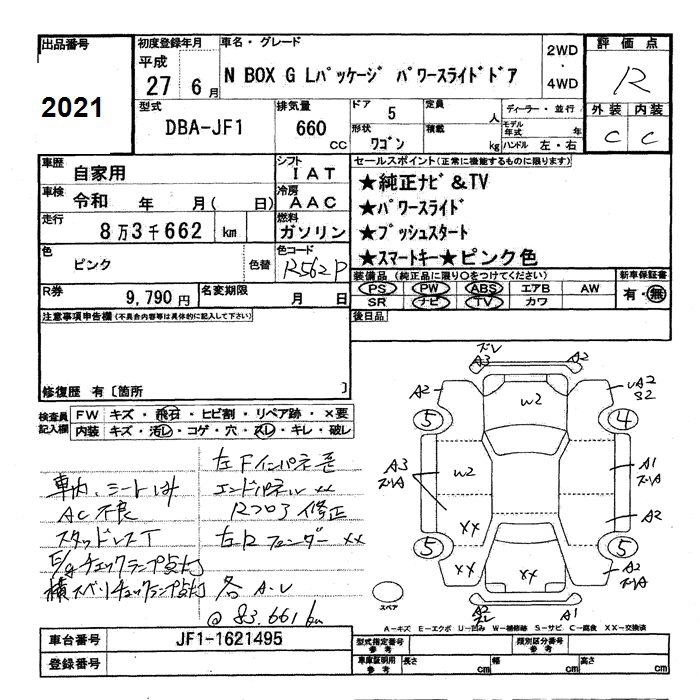 出品番号
2021
初度登録年月
平成 27 年 6 月
車名・グレード
N BOX G Lパッケージ パワースライドドア
2WD ・ 4WD
評価点
R
外装 内装
C C
型式
DBA-JF1
排気量
660 CC
ドア 5
定員 人
形状 ワゴン
積載 kg
ディーラー・並行
モデル年式 年
ハンドル 左・右
車歴 自家用
シフト IAT
車検 令和 年 月( 日)
冷房 AAC
走行 8万3千662 km
燃料 ガソリン
色 ピンク 色替
色コード R562P
R券 9,790円
名変期限 月 日
セールスポイント(正常に機能するものに限ります)
★純正ナビ&TV
★パワースライド
★プッシュスタート
★スマートキー★ピンク色
装備品 (純正品に限り○をつけてください)
PS PW ABS エアB AW
SR ナビ TV カワ
新車保証書
有・無
後日品
注意事項申告欄(不具合内容等は具体的に記入して下さい)
修復歴 有〔箇所 〕
検査員記入欄
FW キズ・飛石・ヒビ割・リペア跡・×要
内装 キズ・汚レ・コゲ・穴・スレ・キレ・破レ
左Fインパネ歪
車内、シートしみ
エンドパネル xx
AC不良
Rフロア修正
スタッドレスT
左Rフェンダー xx
E/gチェックランプ点灯
横スベリチェックランプ点灯
各 A.U
@ 83.661km
ズレ
A3 A2
A2 A2 S2
W2
5 4
A3 W2 A1 ズリA
XX A2
5 5
XX XX A2 ズリA
A2 ズレ A1
スペア
A－キズ E－エクボ U－凹み W－補修跡 S－サビ C－腐食 XX－交換済
車台番号 JF1-1621495
登録番号
型式指定番号 参考
類別区分番号 参考
車庫証明用 参考 長さ cm 幅 cm 高さ cm